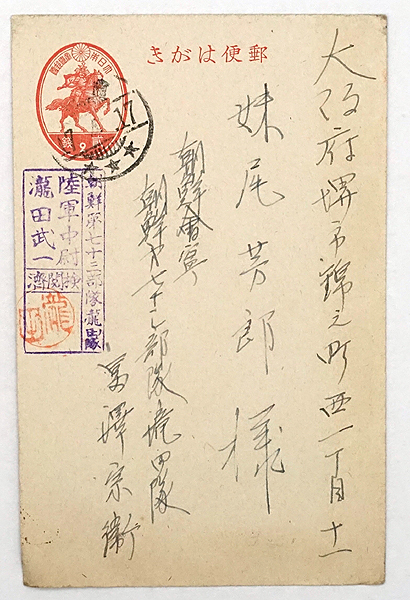 郵便はがき
大日本帝國郵便
大阪府堺市錦之町西一丁目十一
妹尾芳郎様
朝鮮會寧
朝鮮第七十二部隊瀧田隊
富澤宗衛
朝鮮第七十二部隊瀧田隊
陸軍中尉
瀧田武一
検閲濟
17